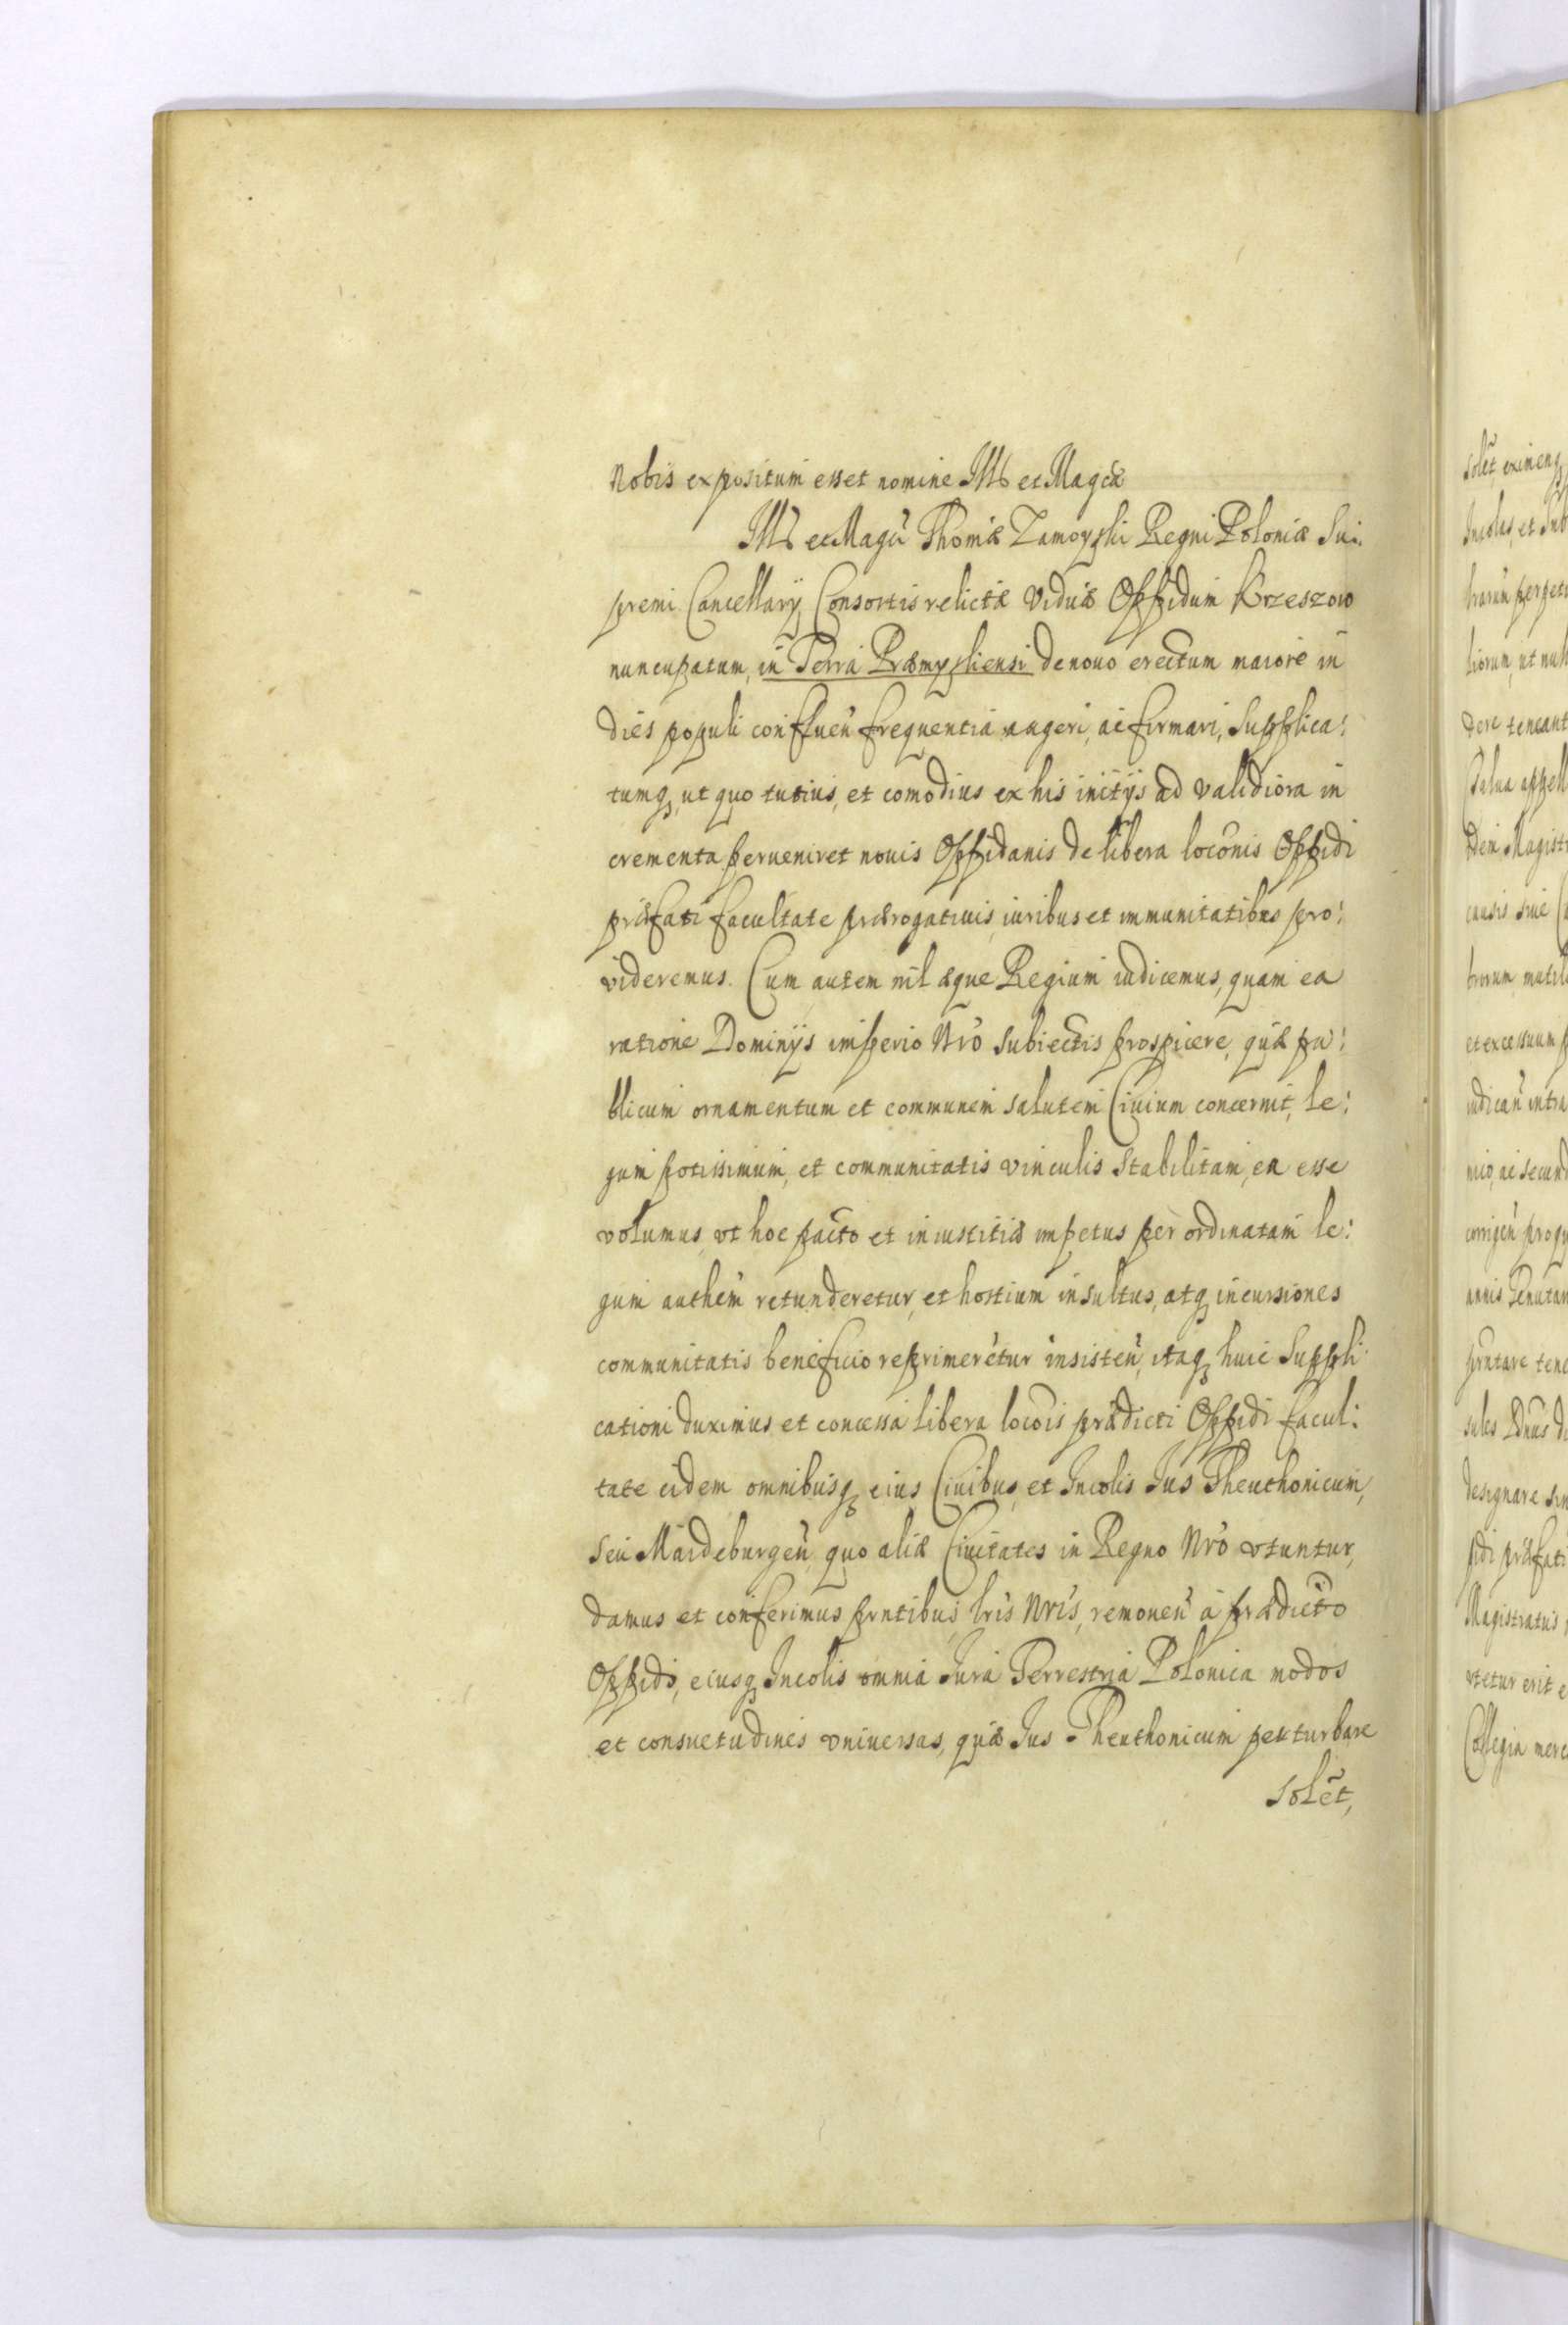 Nobis expositum esset nomine Ill et Magcæ
Ill et Magci Thomæ Zamoyski Regni Poloniæ Su:
premi Cancellarÿ Consortis relictæ Viduæ Oppidum Krzeszow
nuncupatum, in Terra Præmysliensi denouo erectum maiore in
dies populi confluen̄ frequentia augeri, ac firmari, Supplica:
tumq, ut quo tutius, et comodius ex his initÿs ad validiora in
crementa perueniret nouis Oppidanis de libera loco͞nis Oppidi
præfati facultate prærogatiuis iuribus et immunitatibus pro:
videremus. Cum autem nil æque Regium iudicemus, quam ea
ratione Dominÿs imperio Nr̄o Subiectis prospicere, quæ pu:
blicum ornamentum et communem salutem Ciuium concernit, le:
gum potissimum, et communitatis vinculis Stabilitam, ea esse
volumus, vt hoc pacto et iniustitiæ impetus per ordinatam le:
gum authem̄ retunderetur, et hostium insultus, atq incursiones
communitatis beneficio reprimerētur insisten̄, itaq huic Suppli
cationi duximus et concessa libera loco͞is prædicti Oppidi facul:
tate eidem omnibusq eius Ciuibus, et Incolis Jus Theuthonicum,
seu Maideburgen̄, quo aliæ Ciuitates in Regno Nr̄o vtuntur,
damus et conferimus prn̄tibus lr̄is Nr̄is, remouen̄ a prædicto
Oppido, eiusq Incolis omnia Jura Terrestria Polonica modos
et consuetudines vniuersas, quæ Jus Theuthonicum perturbare
solēt,
solēt eximenq
Incolas, et Sub
liorum, ut null
dere teneant
Salua appell
dem Magist
causis siue C
brorum mutil
et excessuum p
iudican̄ intra
nio, ac secund
corrigen̄ pro qu
designare sin
pidi præfati
Magistratus
vtetur erit e
Collegia merc